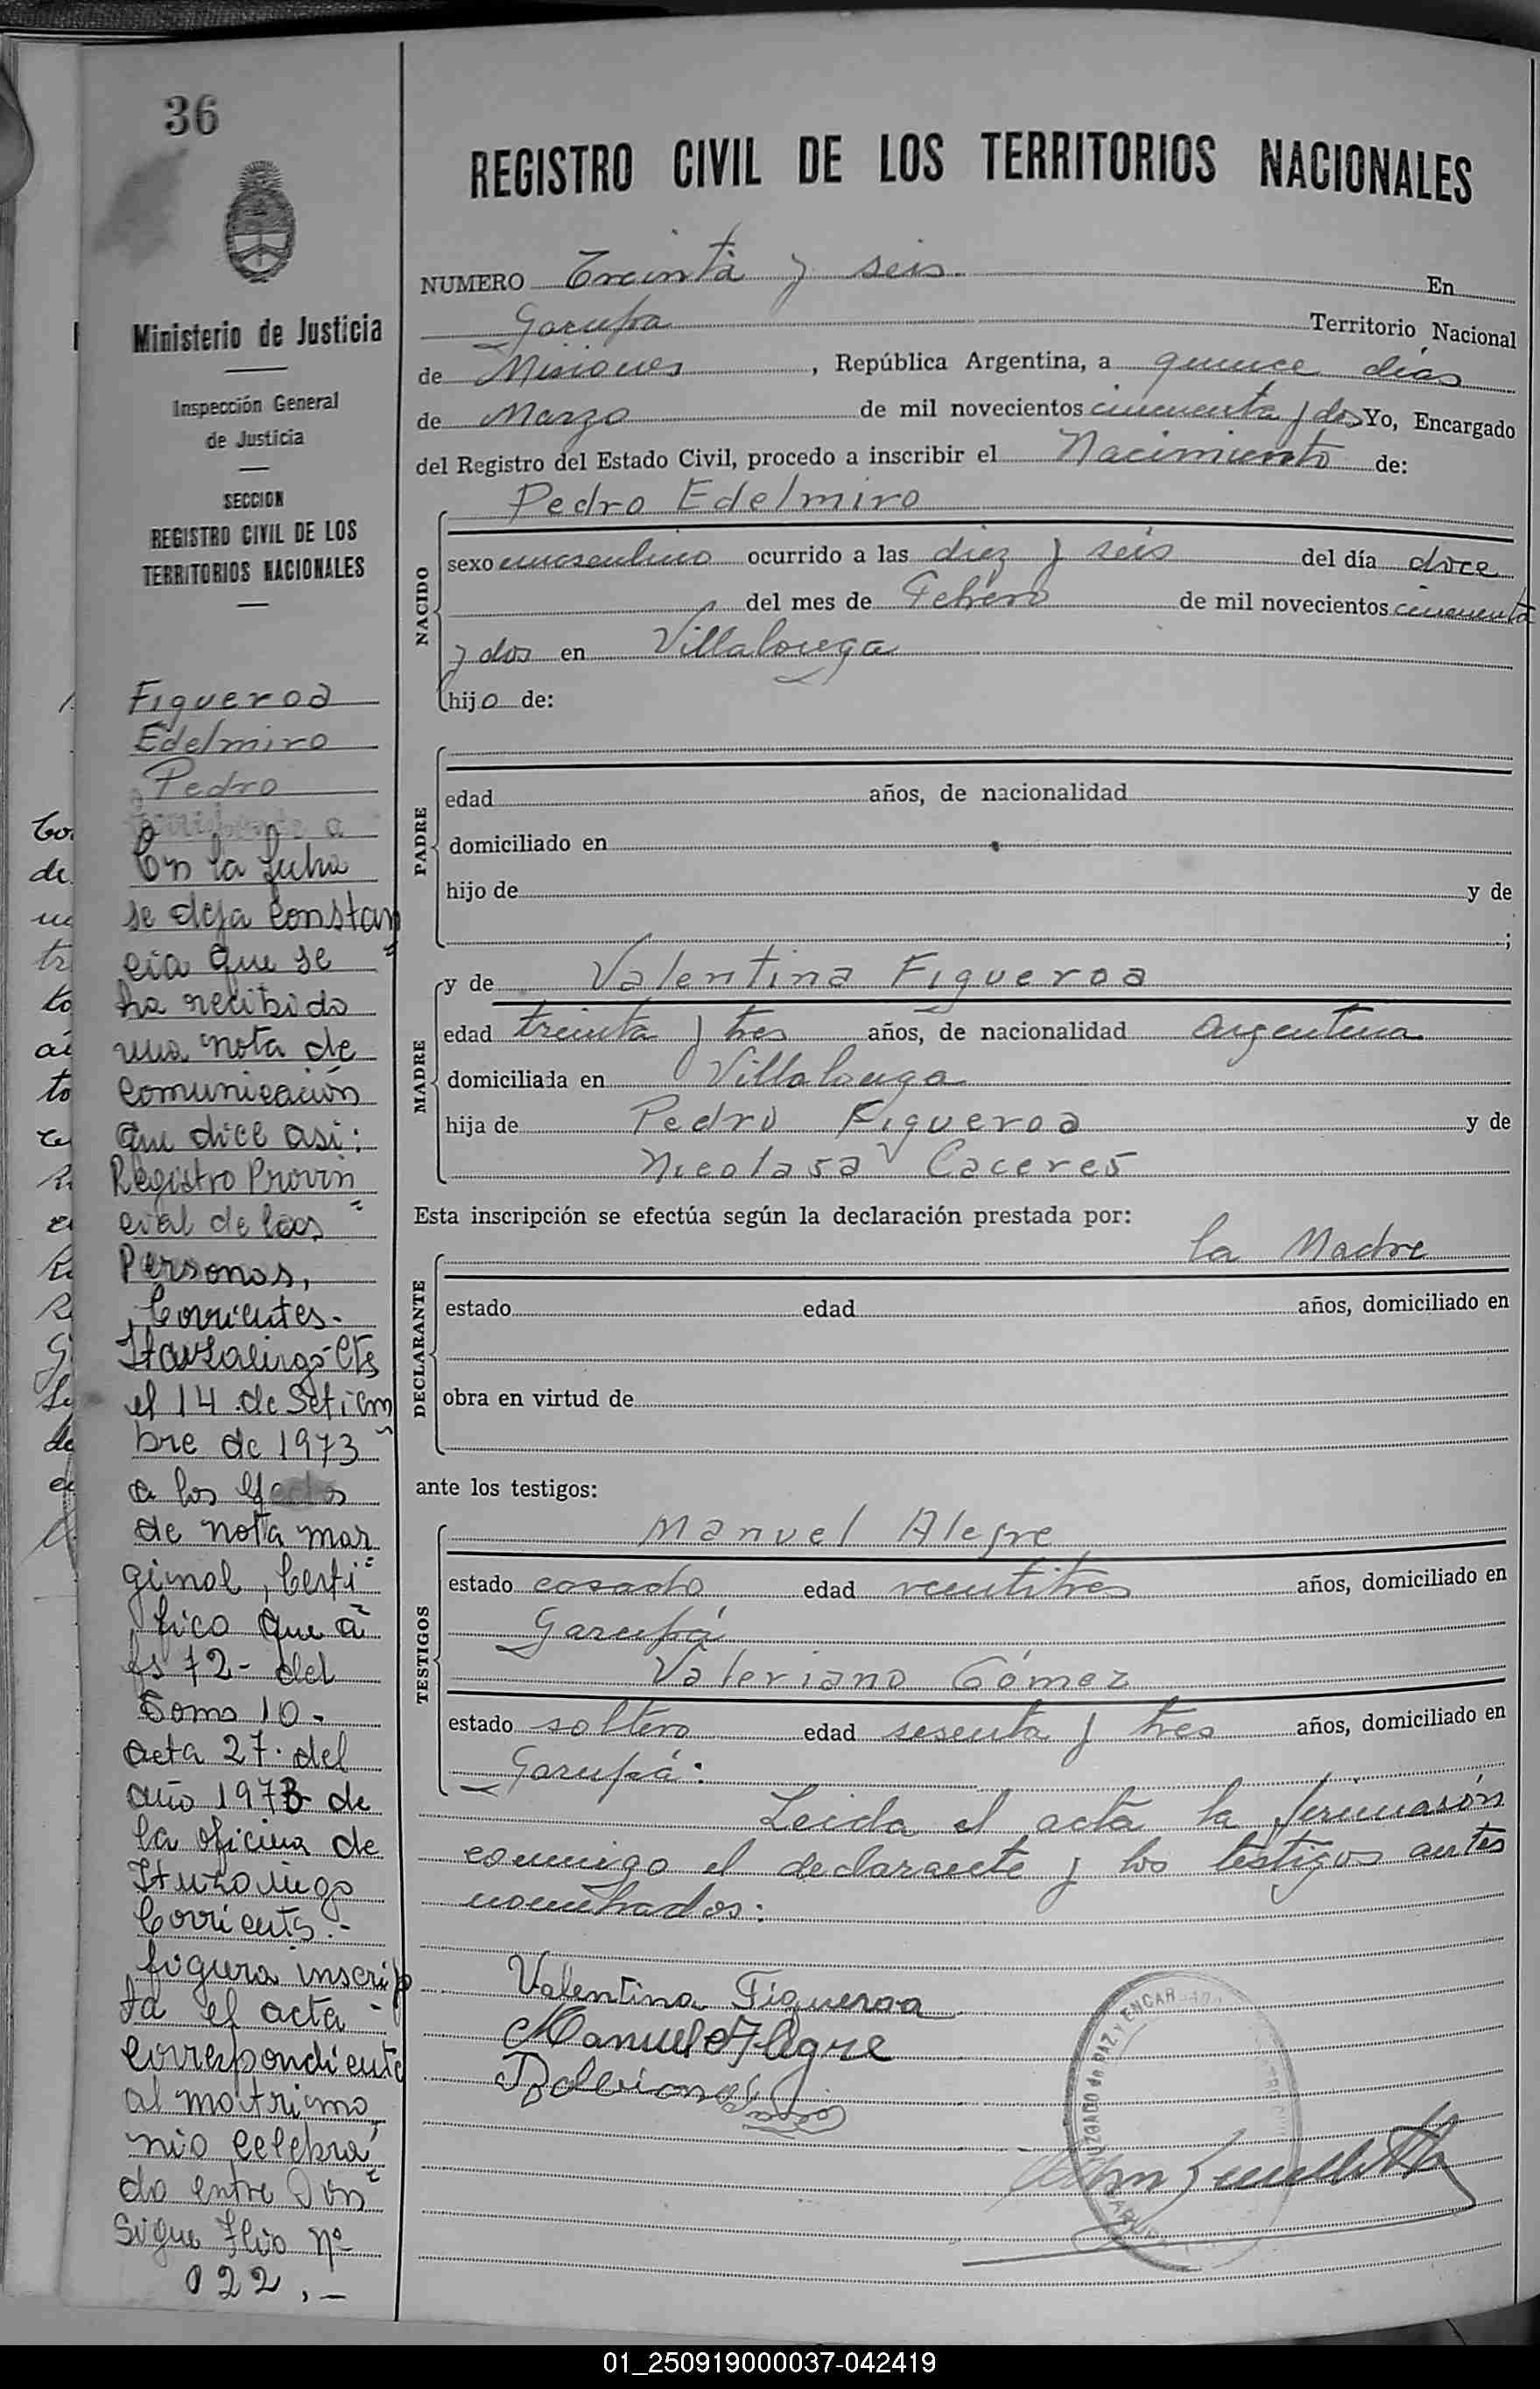 36
Ministerio de Justicia
Inspección General
de Justicia
SECCION
REGISTRO CIVIL DE LOS
TERRITORIOS NACIONALES
Figueroa
Edelmiro
Pedro
En la fecha
se deja constan
cia que se
ha recibido
una nota de
comunicación
que dice asi:
Registro Provin
cial de las
Personas,
Corrientes.
Ituzaingo-Ctes
el 14 de Setiem
bre de 1973
a los efectos
de nota mar
ginal, Certi
fico que a
fs 72- del
Tomo 10-
acta 27. del
año 1973 de
la oficina de
Ituzaingo
Corrientes.-
figura inscrip
ta el acta
correspondiente
al matrimo
nio celebra
do entre Don
Sigue Flio Nº
022,-
REGISTRO CIVIL DE LOS TERRITORIOS NACIONALES
NUMERO Treinta y seis. En
Garupa Territorio Nacional
de Misiones, República Argentina, a quince días
de Marzo de mil novecientos cincuenta y dos Yo, Encargado
del Registro del Estado Civil, procedo a inscribir el Nacimiento de:
NACIDO
Pedro Edelmiro
sexo masculino ocurrido a las diez y seis del día doce
del mes de Febrero de mil novecientos cincuenta
y dos en Villalonga
hijo de:
PADRE
edad años, de nacionalidad
domiciliado en
hijo de y de
;
MADRE
y de Valentina Figueroa
edad treinta y tres años, de nacionalidad argentina
domiciliada en Villalonga
hija de Pedro Figueroa y de
Nicolasa Caceres
Esta inscripción se efectúa según la declaración prestada por:
DECLARANTE
la Madre
estado edad años, domiciliado en
obra en virtud de
ante los testigos:
TESTIGOS
Manuel Alegre
estado casado edad veintitres años, domiciliado en
Garupá
Valeriano Gómez
estado soltero edad sesenta y tres años, domiciliado en
Garupá:
Leida el acta la firmarón
conmigo el declarante y los testigos antes
nombrados:
Valentina Figueroa
Manuel Alegre
JUZGADO de PAZ y ENCARGADO
GARUPA
01_250919000037-042419